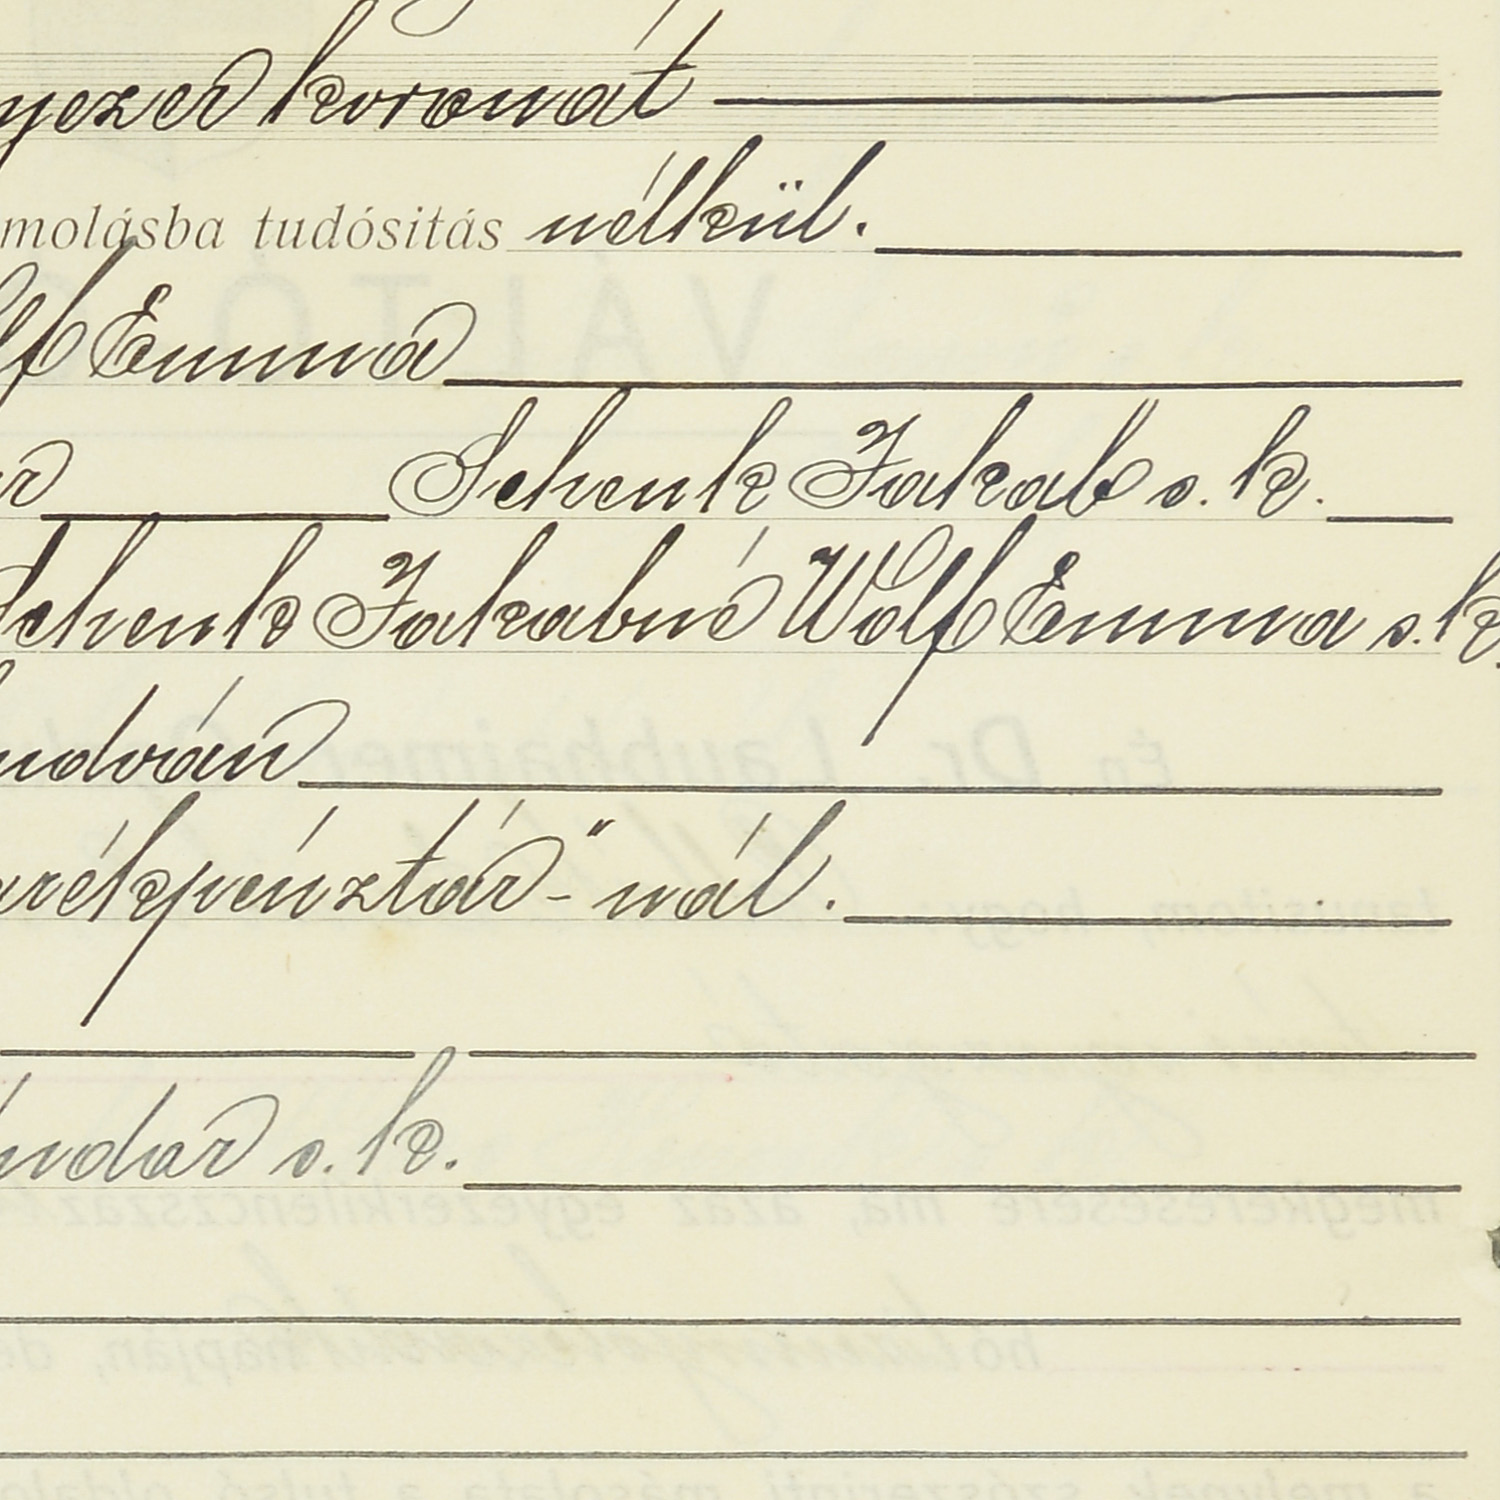 yezer koronát
molásba tudósitás nélkül.
lf Emma
Schenk Jakab s. k.
Schenk Jakabné Wolf Emma s. k.
udván
arékpénztár"-nál.
ándor s. k.